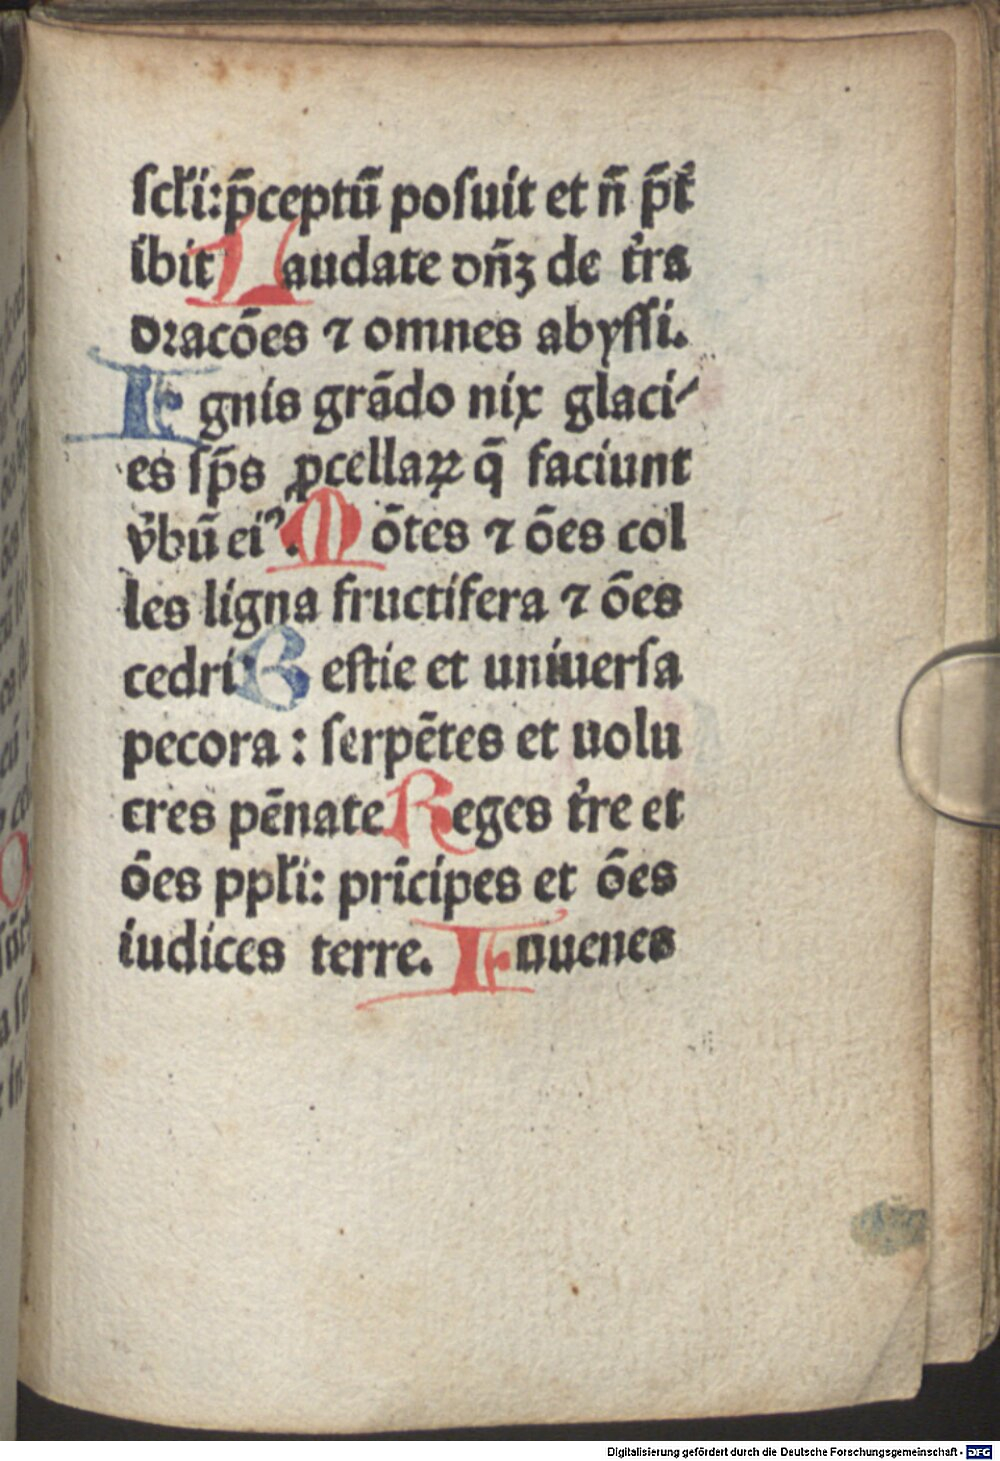 ſcłi: p̄ceptū poſuit et ñ p̄t̛
ibit Laudate dñʒ de t̛ra
dꝛacões ⁊ omnes abyſſi.
Ignis grādo nix glaci⸗
es ſp̄s ꝓcellaꝝ q̄ faciunt
v̛bū eiꝰ. Mōtes ⁊ ōes col
les ligna fructifera ⁊ ōes
cedri Beſtie et uniuerſa
pecora : ſerpētes et uolu
cres pēnate Reges t̛re et
ōes ppłi: prīcipes et ōes
iudices terre. Iuuenes
Digitalisierung gefördert durch die Deutsche Forschungsgemeinschaft - DFG